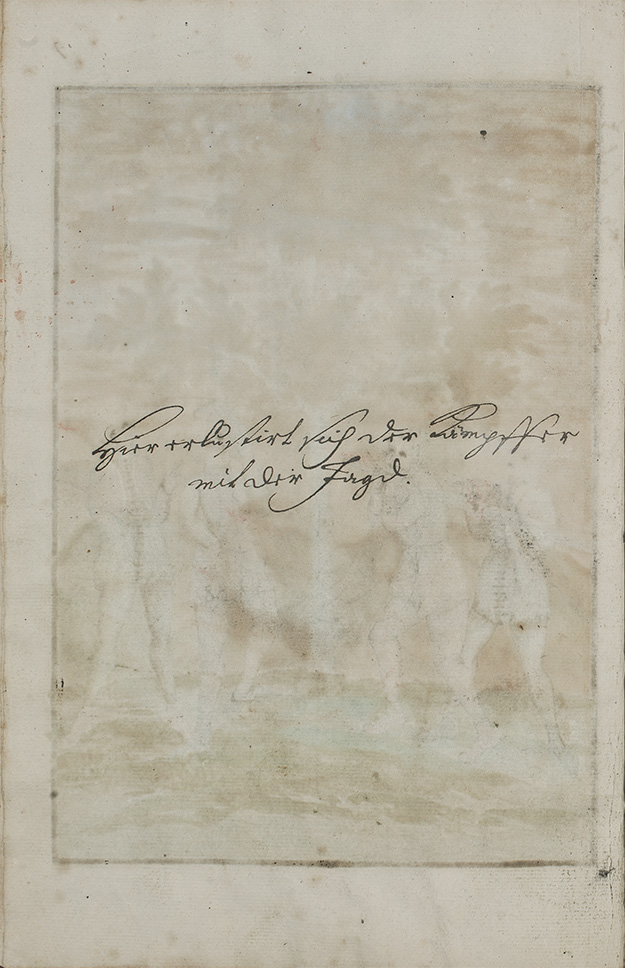 Hier erlustirt sich der Kämpffer
mit der Jagd.